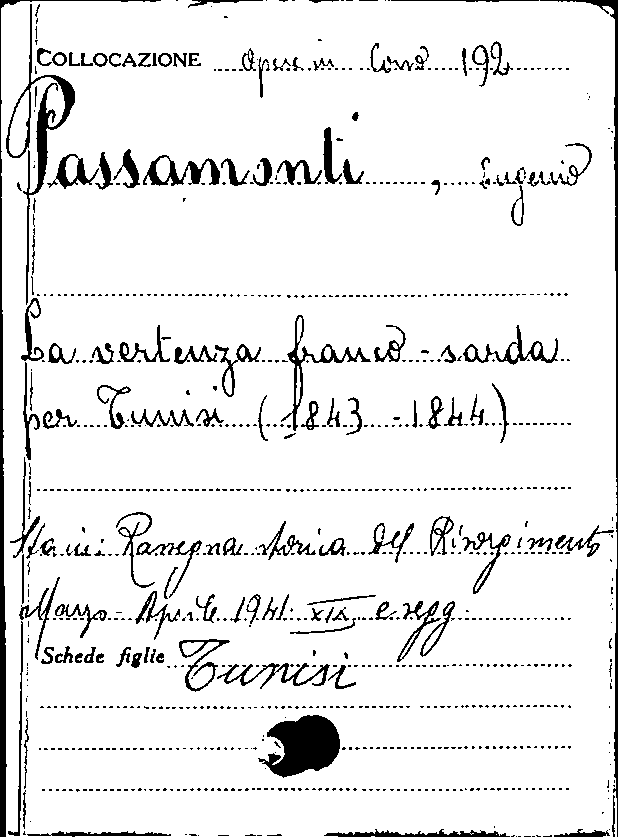 COLLOCAZIONE Opere in Corso 192
Passamonti, Eugenio
La vertenza franco-sarda
per Tunisi (1843-1844)
Sta in: Rassegna storica del Risorgimento
Marzo-Aprile 1941. XIX, e segg.
Schede figlie Tunisi